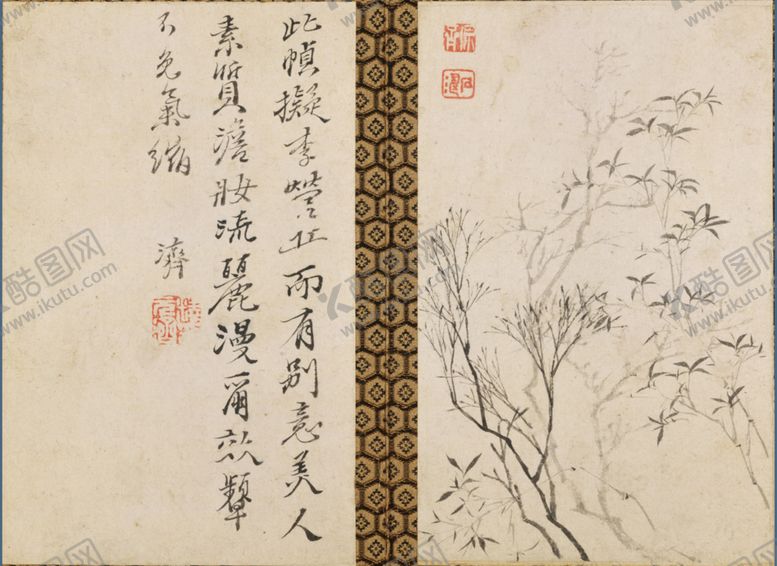 此幀擬李營丘而有別意美人
素質澹妝流麗漫爾效顰
不免氣縮
濟
酷图网
www.ikutu.com